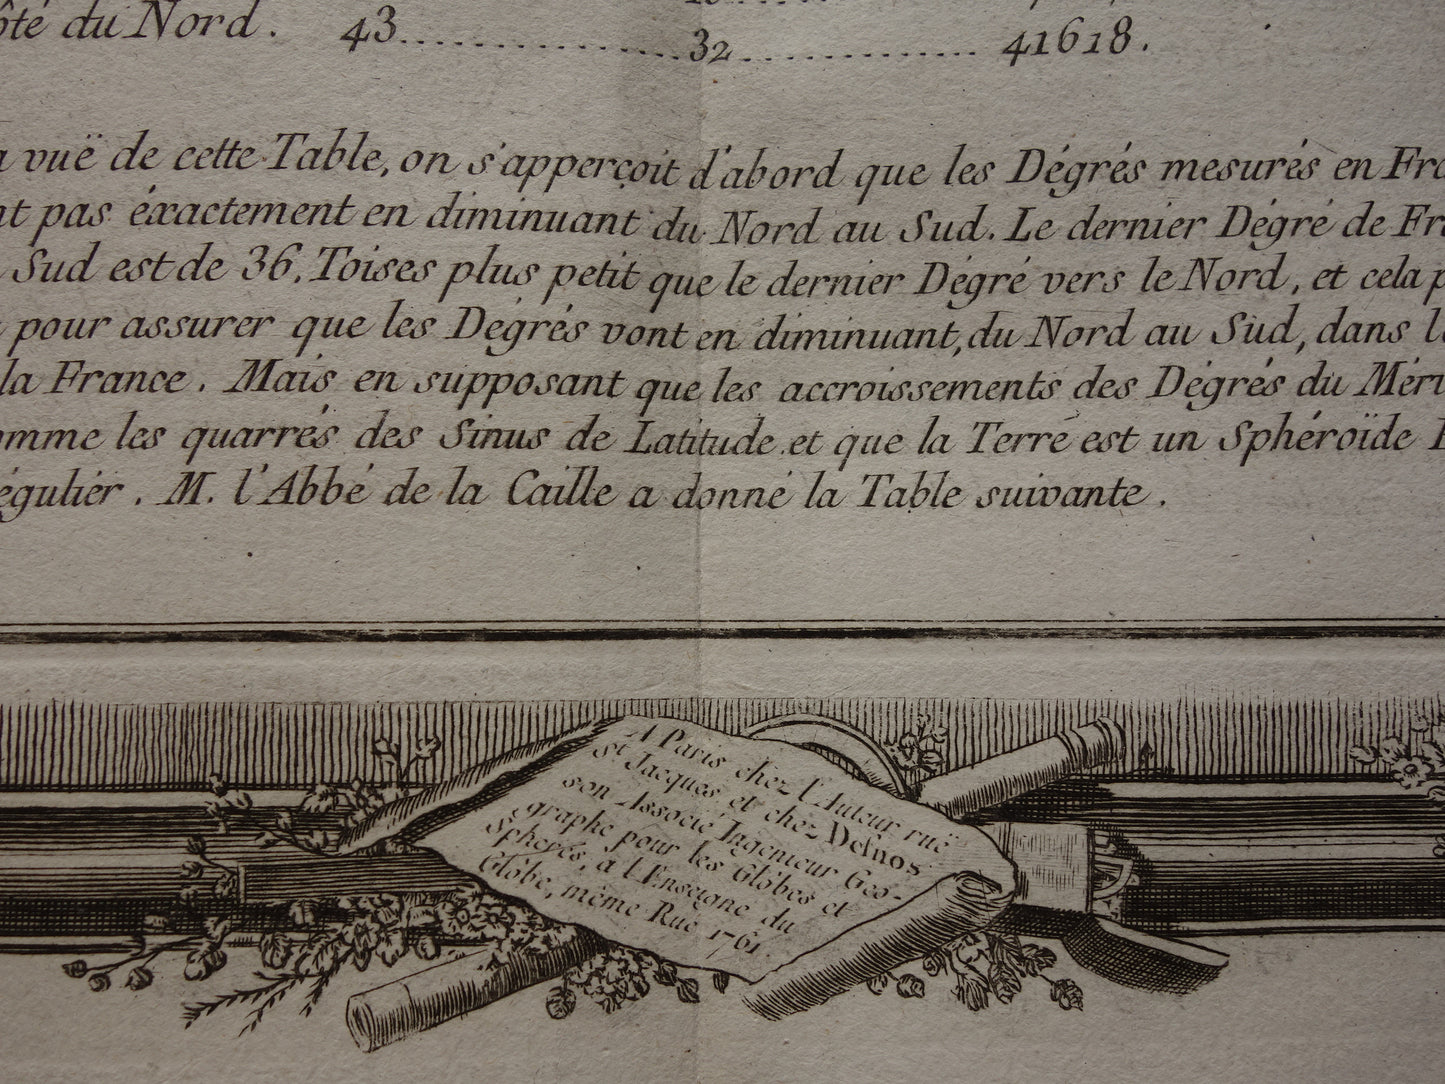 ôté du Nord. 43 32 41618.
vuë de cette Table, on s'apperçoit d'abord que les Dégrés mesurés en Fra
nt pas éxactement en diminuant du Nord au Sud. Le dernier Dégré de Fr
Sud est de 36. Toises plus petit que le dernier Dégré vers le Nord, et cela p
pour assurer que les Dégrés vont en diminuant, du Nord au Sud, dans l
la France. Mais en supposant que les accroissements des Dégrés du Méri
omme les quarrés des Sinus de Latitude et que la Terre est un Sphéroïde
égulier. M. l'Abbé de la Caille a donné la Table suivante.
A Paris chez l'Auteur ruë
St. Jacques et chez Desnos
son Associé Ingenieur Geo-
graphe pour les Glôbes et
Spheres, à l'Enseigne du
Glôbe, même Ruë 1761.